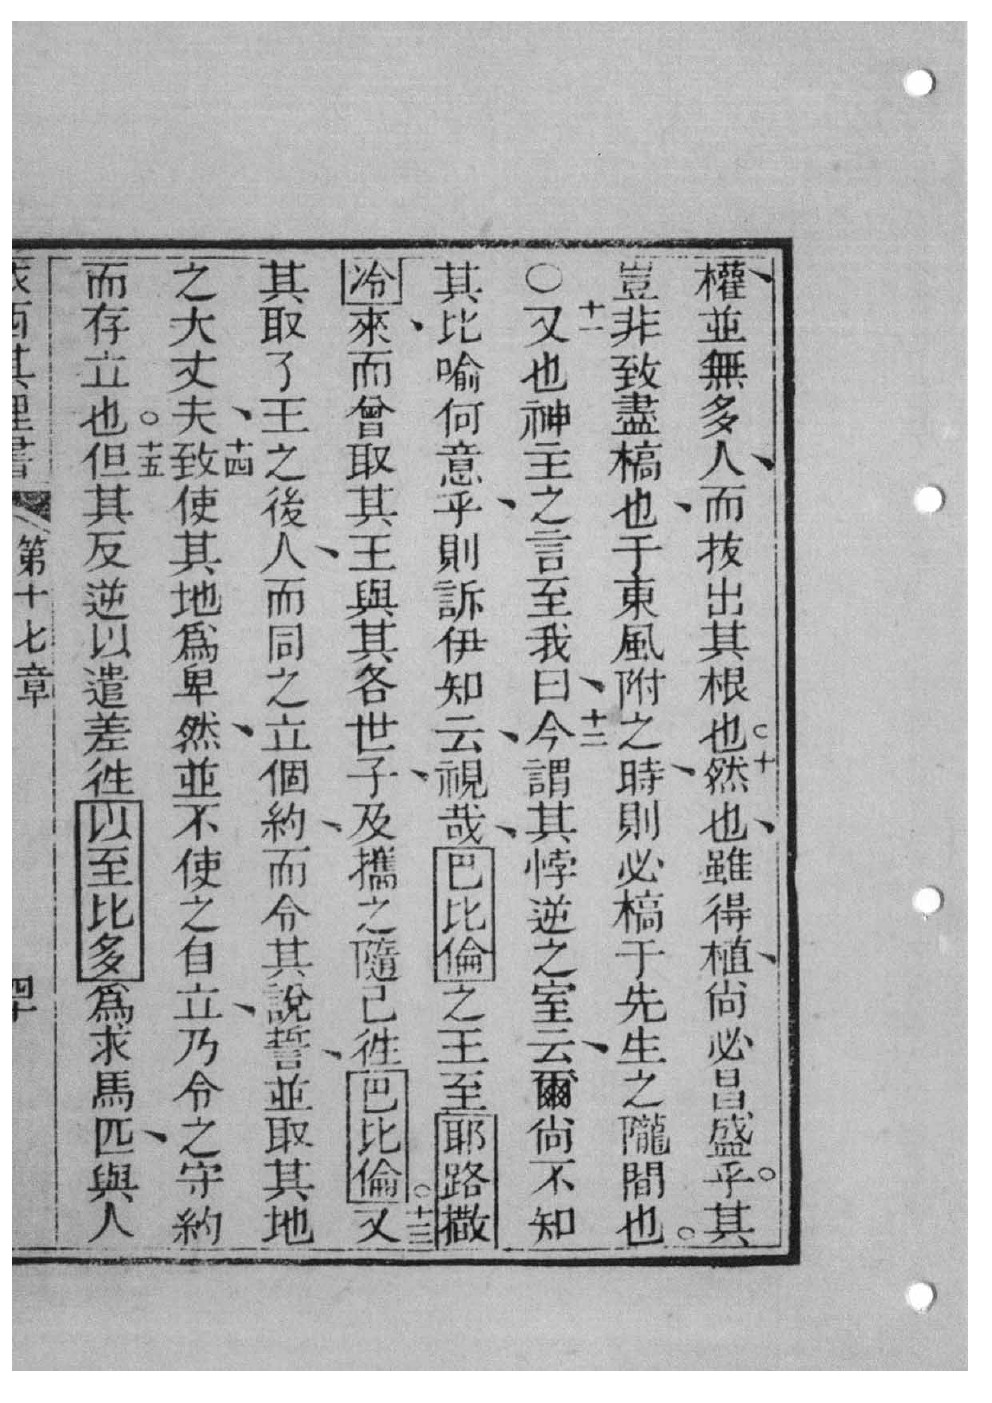 權並無多人、而拔出其根也。十然也、雖得植、尚必昌盛乎。其
豈非致盡槁也、于東風附之時、則必槁于先生之隴間也。
〇十一又也神主之言至我曰、十二今謂其悖逆之室云、爾尙不知
其比喻何意乎、則訴伊知云、視哉、巴比倫之王至耶路撒
冷來、而曾取其王與其各世子、及攜之隨己徃巴比倫。十三又
其取了王之後人、而同之立個約、而令其說誓、並取其地
之大丈夫、十四致使其地爲卑然、並不使之自立、乃令之守約
而存立也。十五但其反逆以遣差徃以至比多爲求馬匹、與人
第十七章
四十